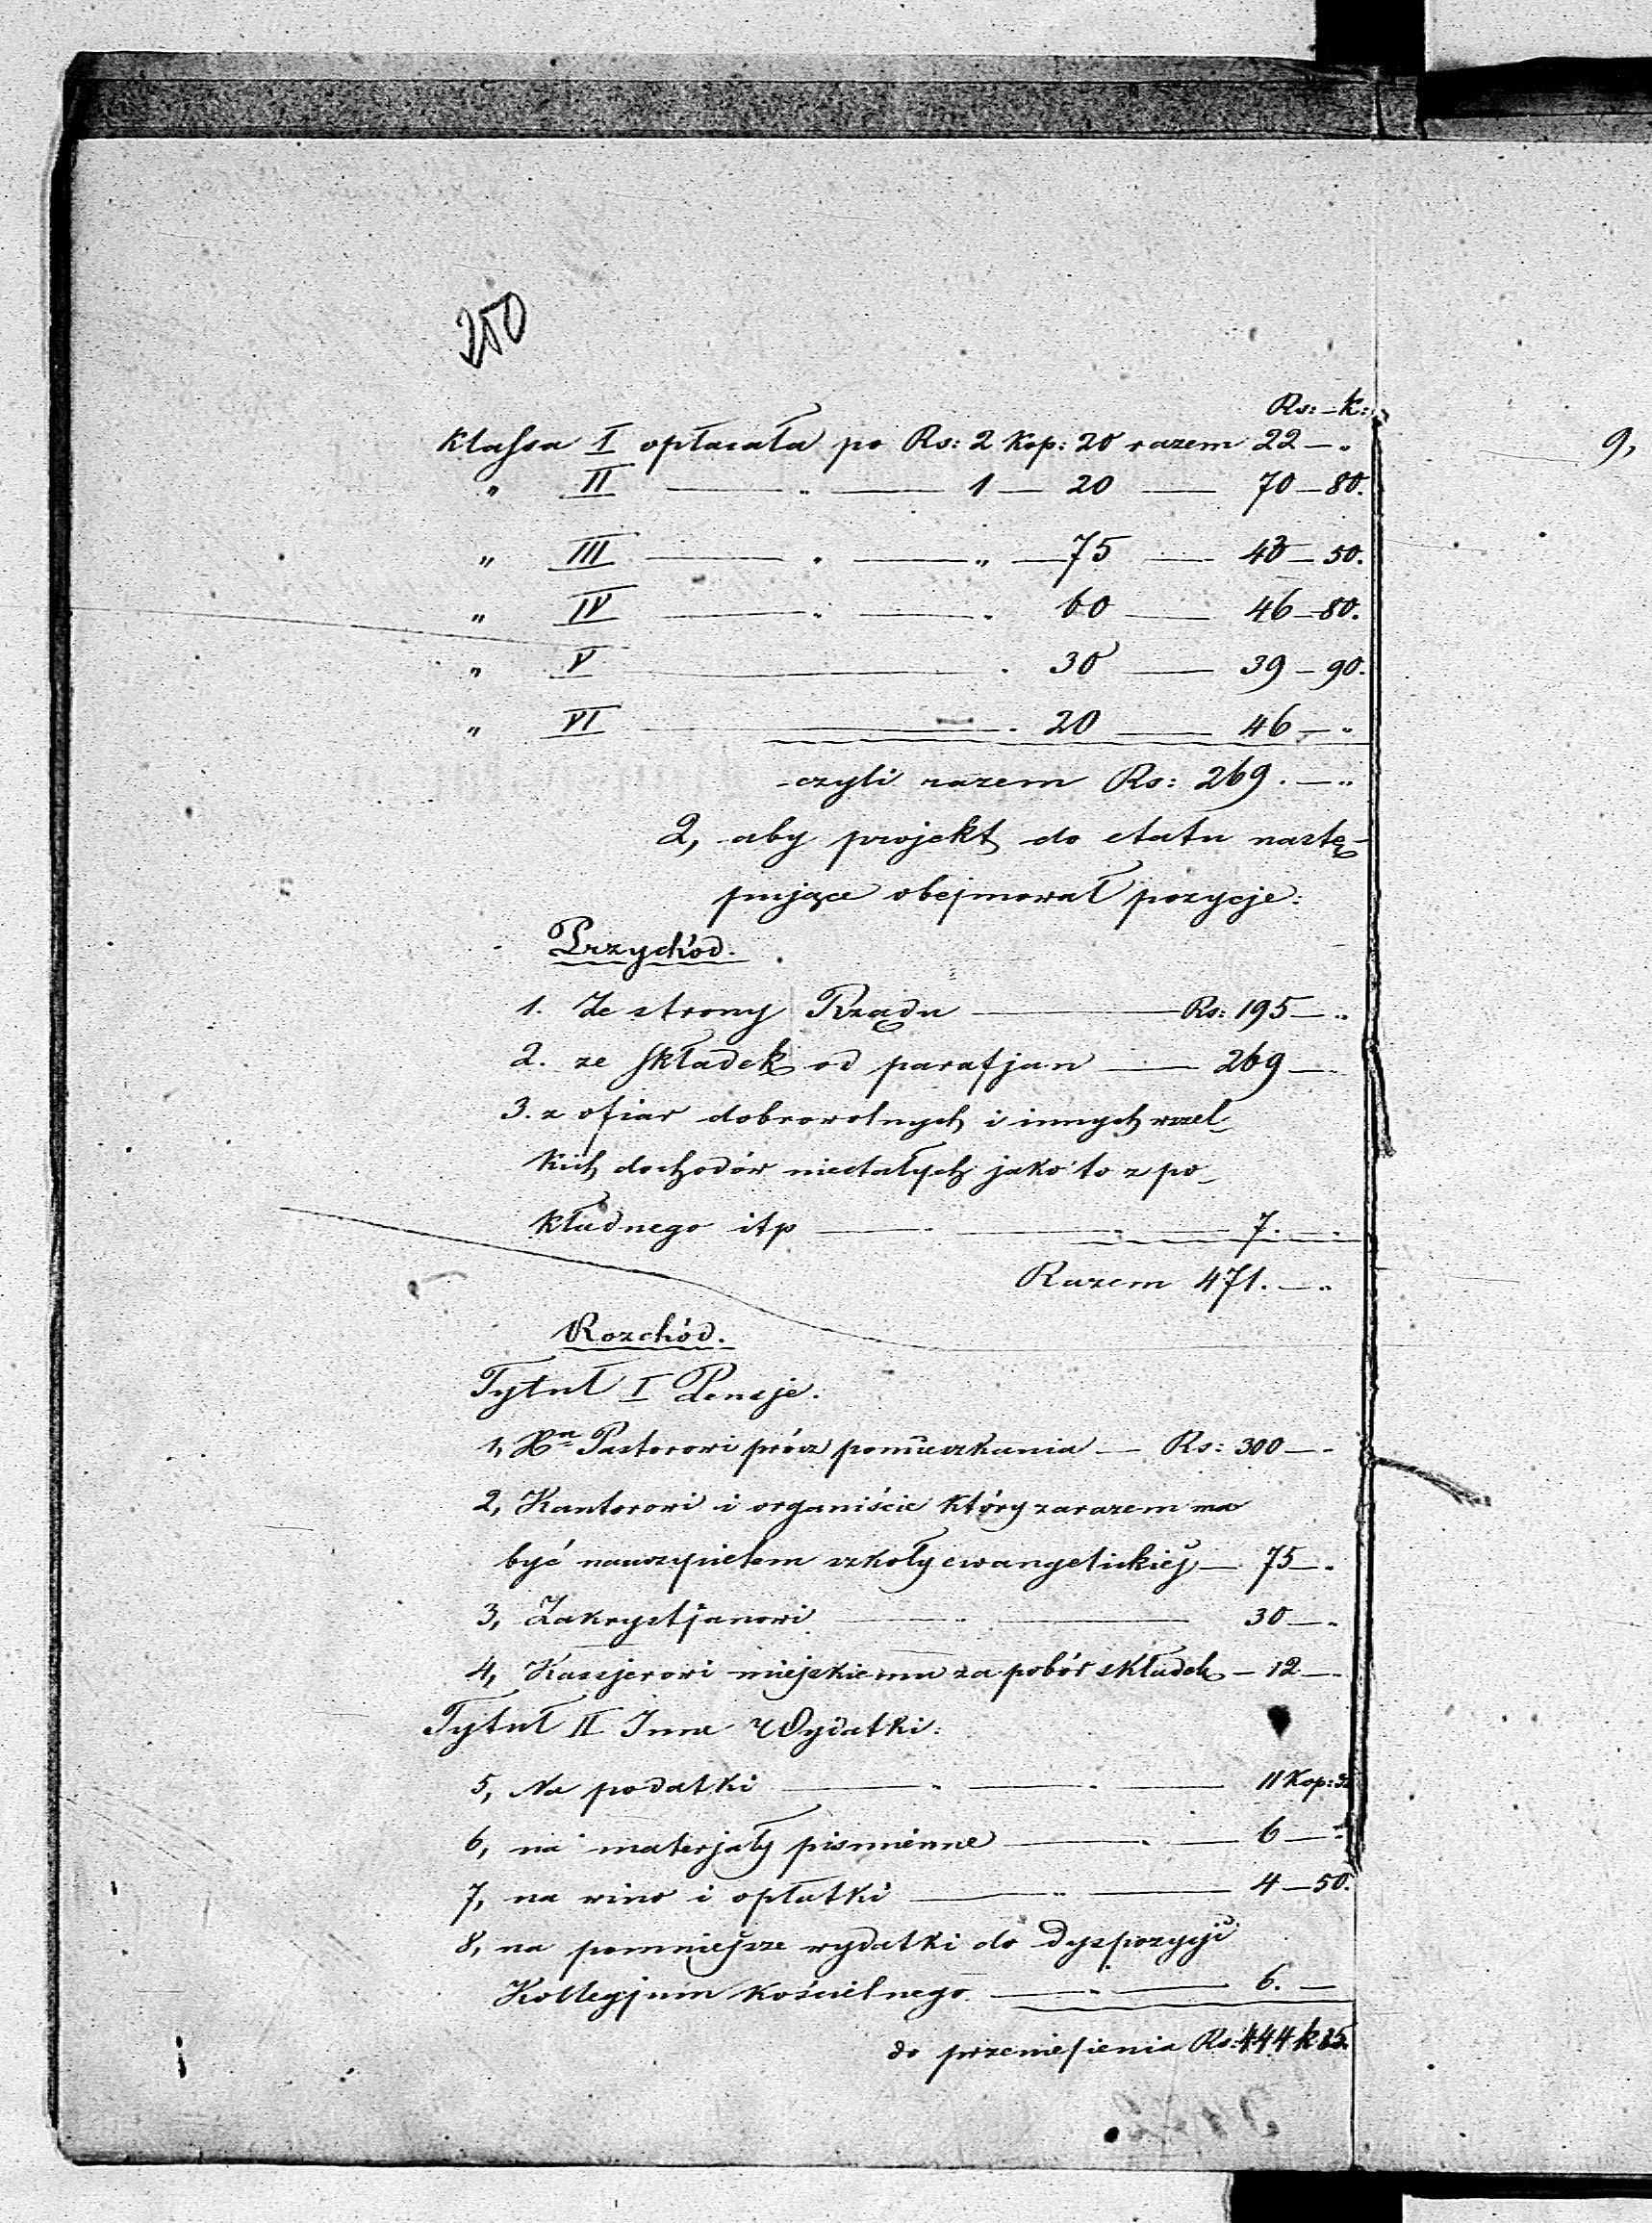 250
Rs: — k:
klassa I opłacała po Rs: 2 Kop: 20 razem 22 — "
" II — " — 1 — 20 — 70 — 80.
" III — " — " — 75 — 43 — 50.
" IV — " — " 60 — 46 — 80.
" V — " 30 — 39 — 90.
" VI — " 20 — 46 — "
czyli razem Rs: 269. — "
2, aby projekt do etatu nastę-
pujące obejmował pozycje:
Przychód.
1. Ze strony Rządu — Rs: 195 — "
2. ze składek od parafjan — 269 —
3. z ofiar dobrowolnych i innych wszel-
kich dochodów niestałych jako to z po-
kładnego itp — " — " — 7. —
Razem 471. — "
Rozchód.
Tytuł I Pensje.
1, Xn Pastorowi prócz pomieszkania — Rs: 300 — "
2, Kantorowi i organiście który zarazem ma
być nauczycielem szkoły ewangelickiej — 75 — "
3, Zakrystjanowi — " — 30 — "
4, Kassjerowi miejskiemu za pobór składek — 12 — "
Tytuł II Inne Wydatki:
5, Na podatki — " — " — 11 Kop:
6, na materjały piśmienne — " — 6 — "
7, na wino i opłatki — " — 4 — 50.
8, na pomniejsze wydatki do Dyspozycji
Kollegjum kościelnego — " — 6. —
do przeniesienia Rs: 444 k 85.
9,